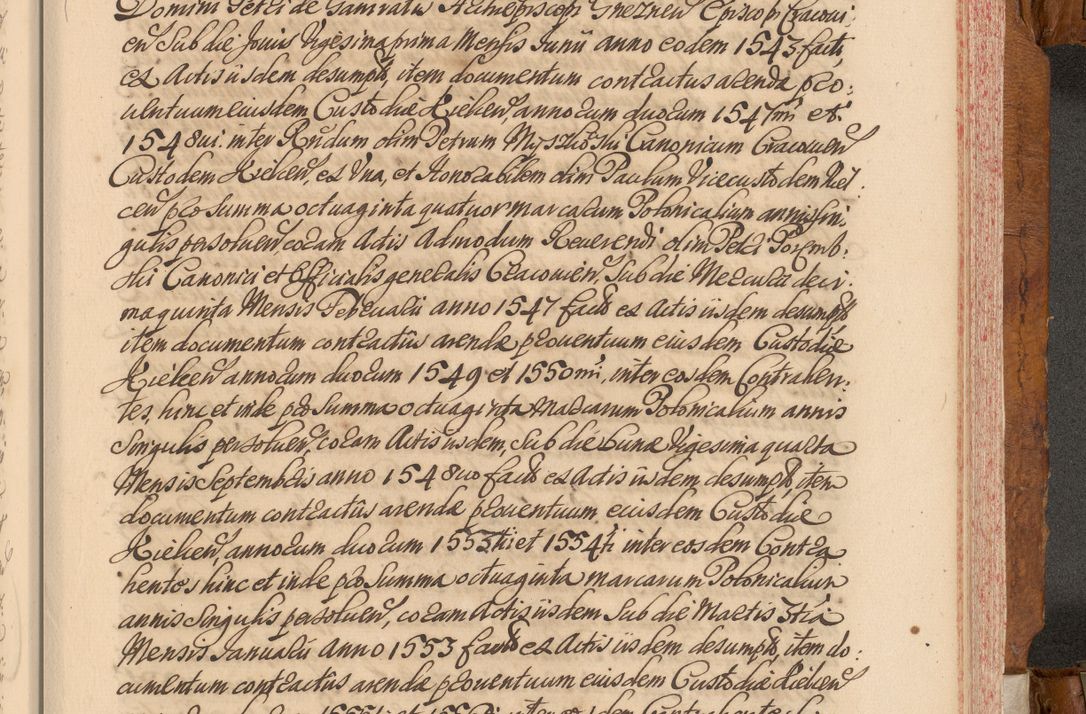 Domini Petri de Gamratis Archiepiscopi Gneznen Episcopi Cracovi:
en Sub die Jovis Vigesima prima Mensis Junii anno eodem 1543 facti,
ex Actis iisdem desumpt, item documentum contractus arendæ pro:
ventuum eiusdem Custodiæ Kielcen, annorum duorum 1547mi et
1548vi. inter Rndum olim Petrum Myszkoski Canonicum Cracovien
Custodem Kielcen, ex Una, et Honorabilem olim Paulum Vicecustodem Kiel:
cen pro Summa octuaginta quatuor marcarum Polonicalium annis sin:
gulis persolven, coram Actis Admodum Reverendi olim Petri Poremb:
ski Canonici et Officialis generalis Cracovien, Sub die Mercurii deci:
ma quinta Mensis Februarii anno 1547 facto ex Actis iisdem desumpt
item documentum contractus arendæ proventuum eiusdem Custodiæ
Kielcen annorum duorum 1549 et 1550mi, inter eosdem Contrahen:
tes, hinc et inde pro Summa octuaginta Marcarum Polonicalium annis
Singulis persolven, coram Actis iisdem, Sub die Lunæ Vigesima quarta
Mensis Septembris anno 1548vo facto ex Actis iisdem desumpt, item
documentum contractus arendæ proventuum eiusdem Custodiæ
Kielcen, annorum duorum 1553tii et 1554ti inter eosdem Contra
hentes hinc et inde pro Summa octuaginta marcarum Polonicalium
annis Singulis persolven, coram Actis iisdem Sub die Martis 3tia
Mensis Januarii Anno 1553 facto ex Actis iisdem desumpt, item do:
cumentum contractus arendæ proventuum eiusdem Custodiæ Kielcen